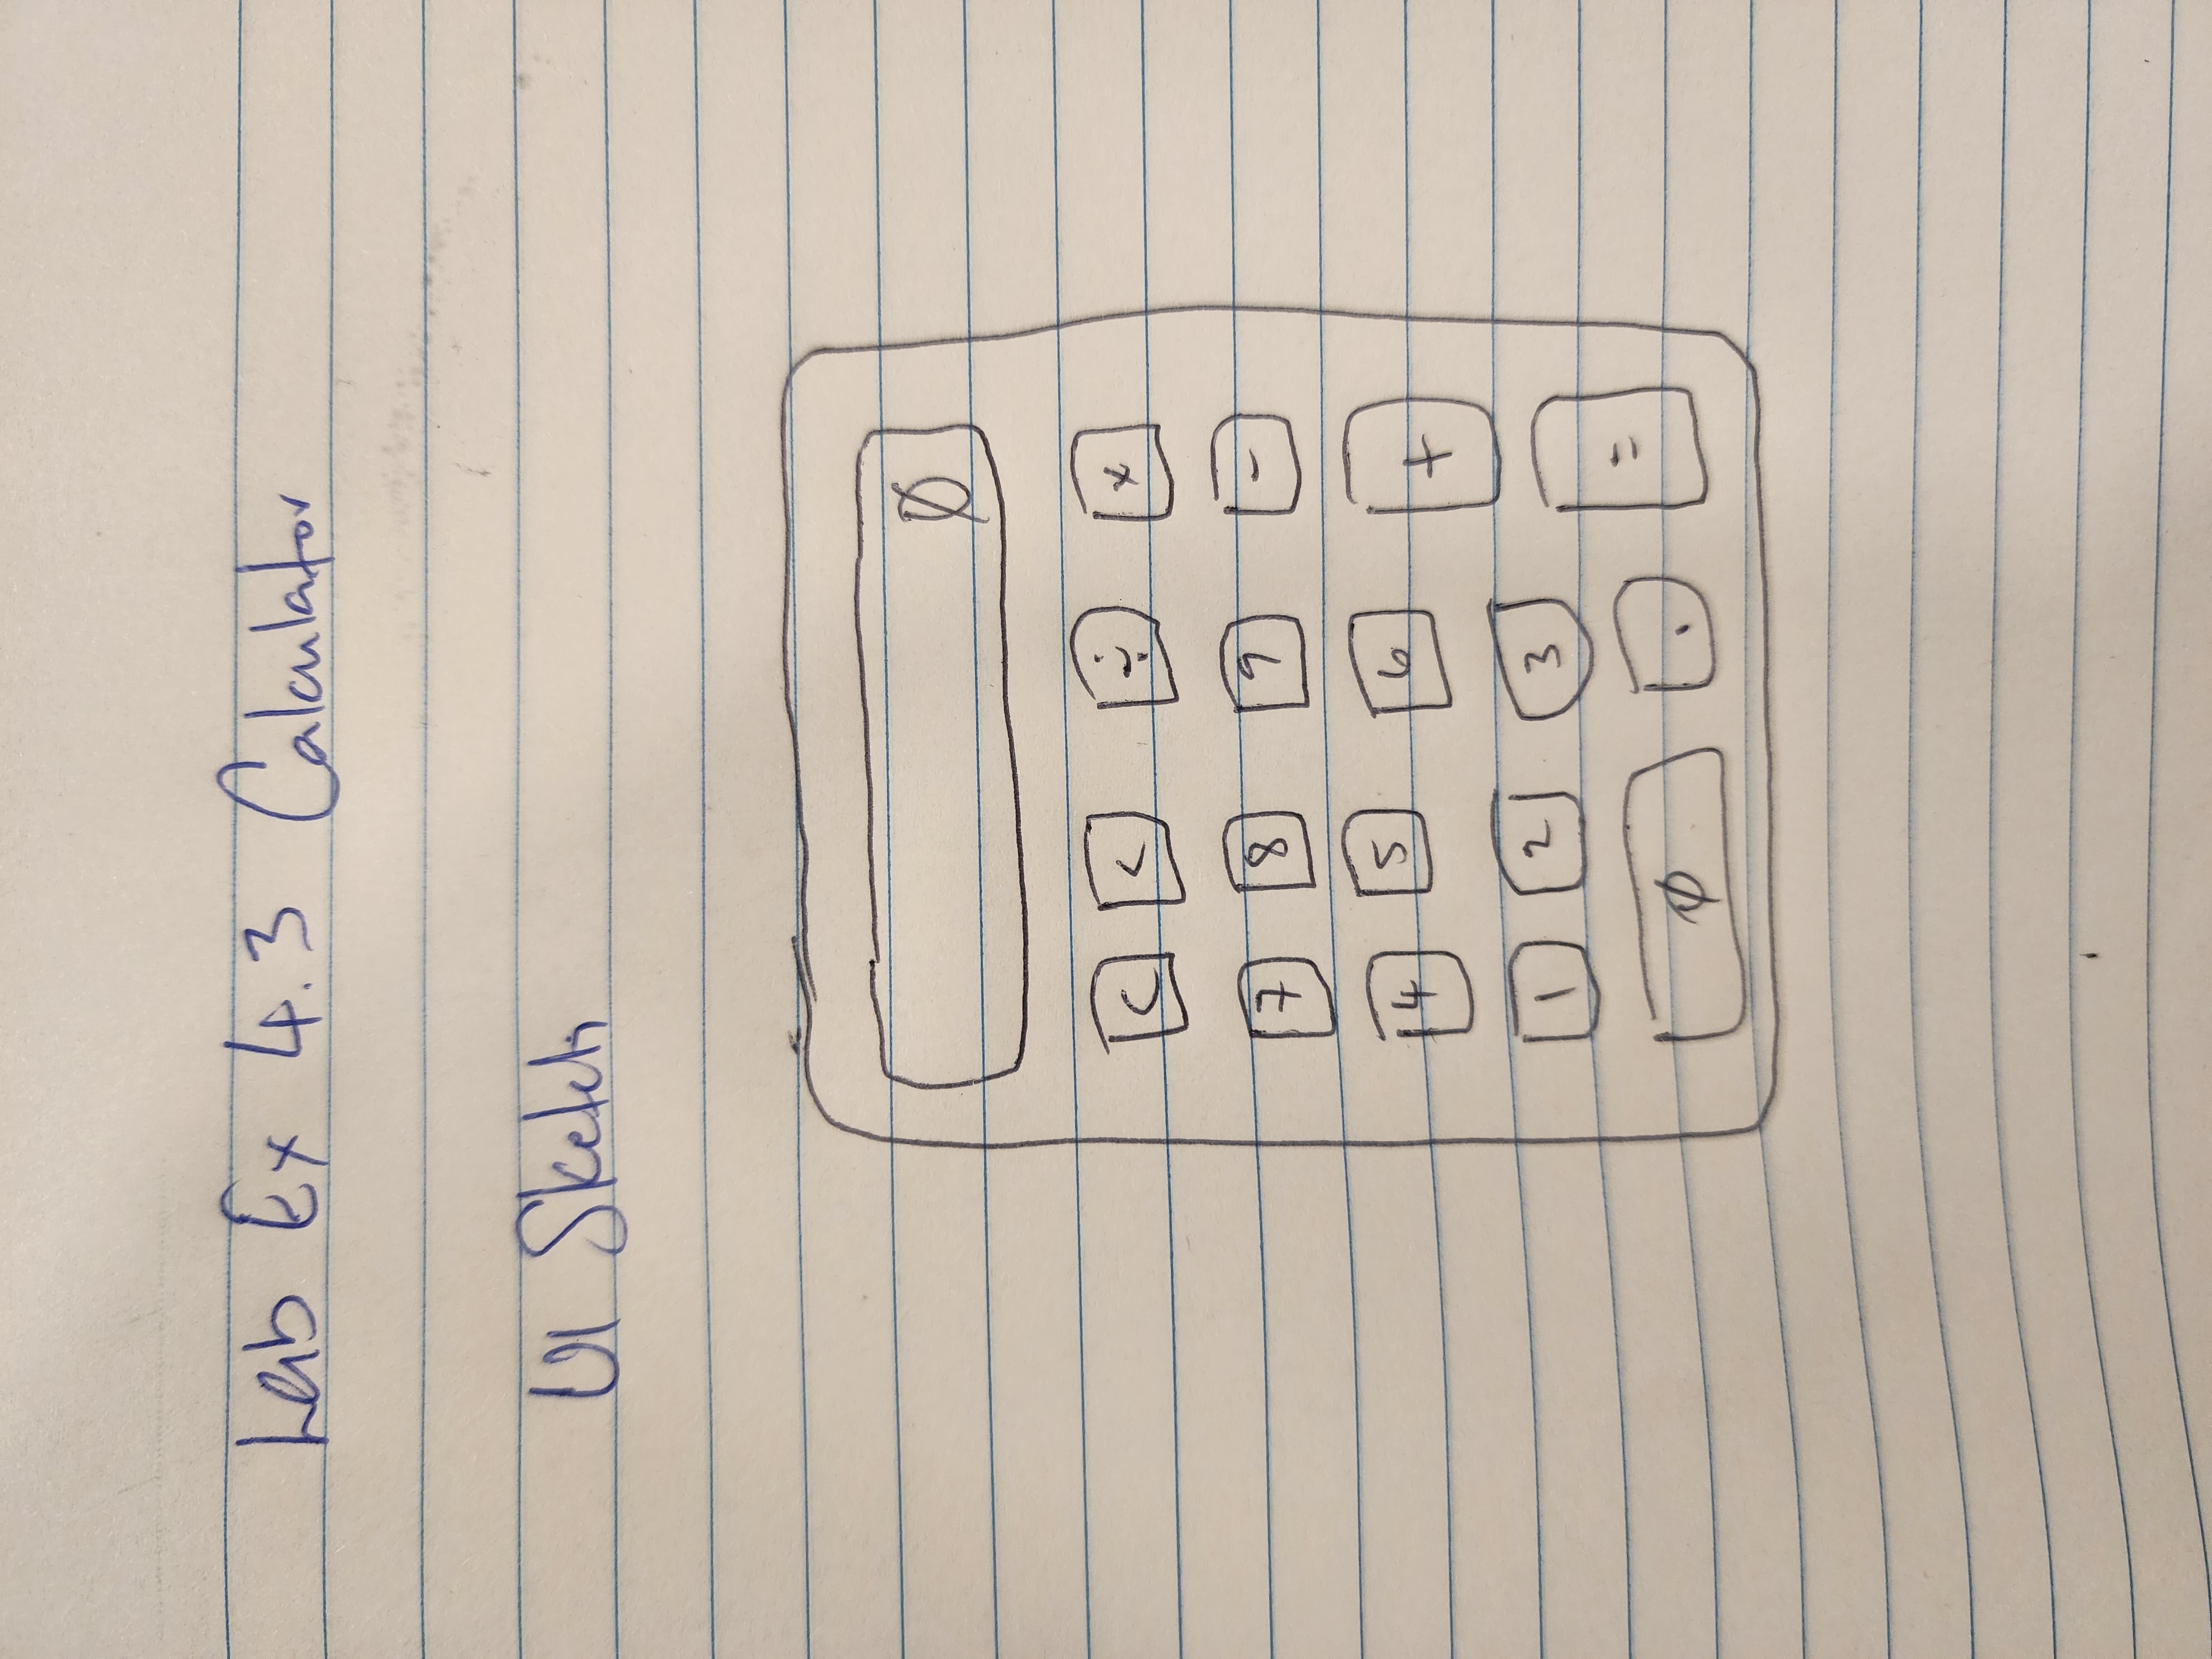 Lab Ex 4.3 Calculator
UI Sketch
0
C < ÷ ×
7 8 9 -
4 5 6 +
1 2 3
0 . =